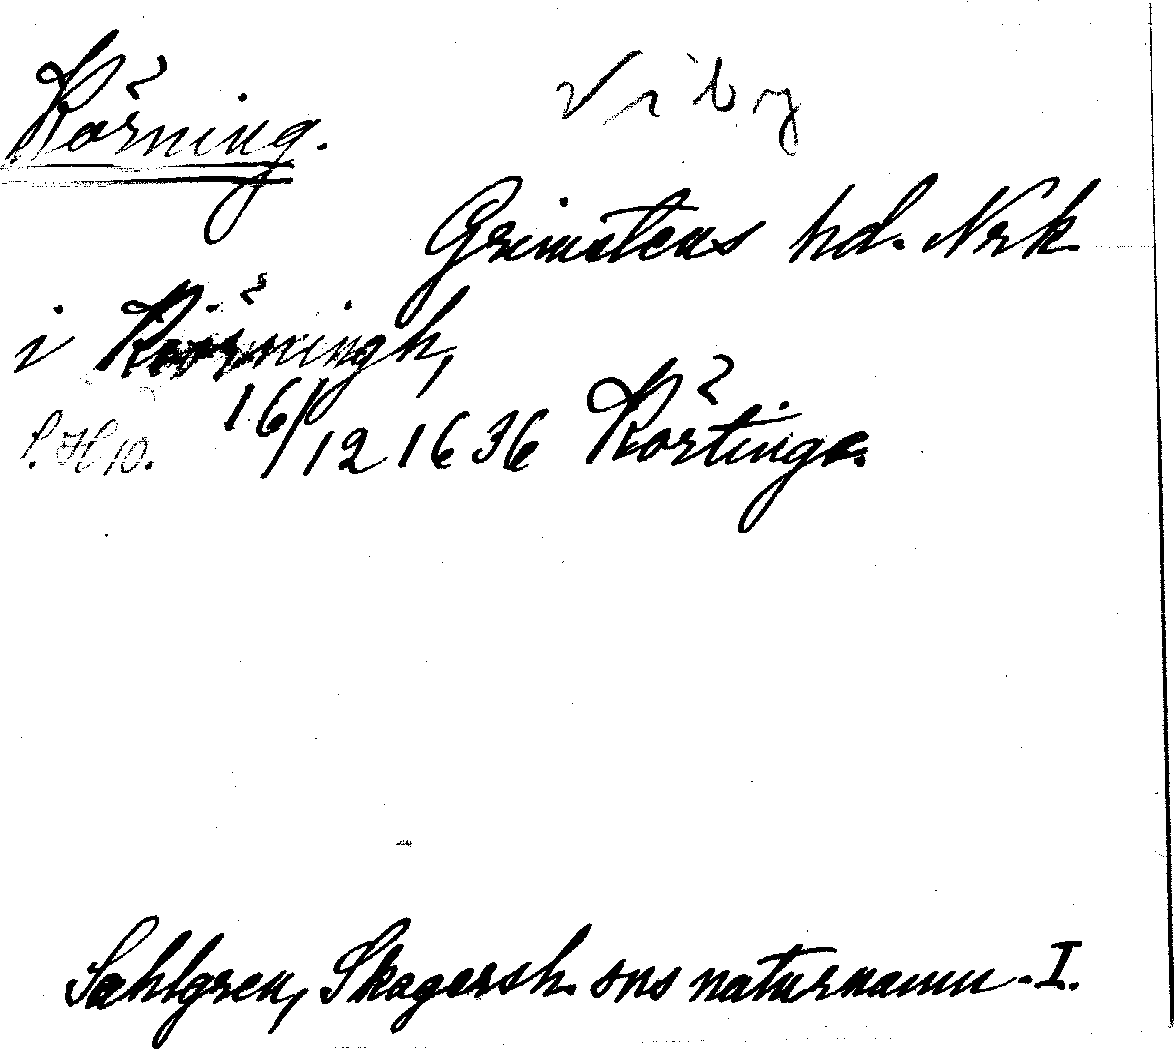 Körning.
Viby
Grimstens hd. Nrk
i Körningh,
16/12 1636 Körtinge.
Sahlgren, Skagersh. sns naturnamn. I.